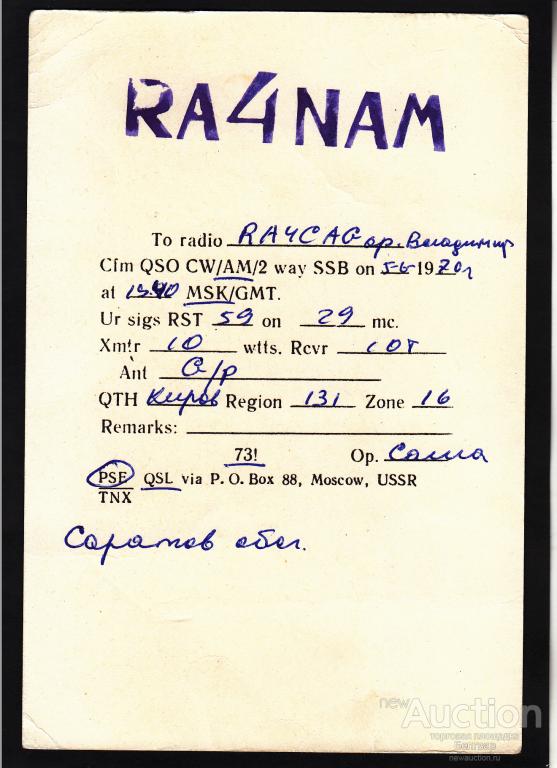 RA4NAM
To radio RA4CAG ор. Владимир
Cfm QSO CW/AM/2 way SSB on 5-6 1970г
at MSK/GMT.
Ur sigs RST 59 on 29 mc.
Xmtr 10 wtts. Rcvr 10T
Ant G/P
QTH Киров Region 131 Zone 16
Remarks:
73! Op. Саша
PSE QSL via P. O. Box 88, Moscow, USSR
TNX
Саратов обл.
newAuction
торговая площадка
newauction.ru